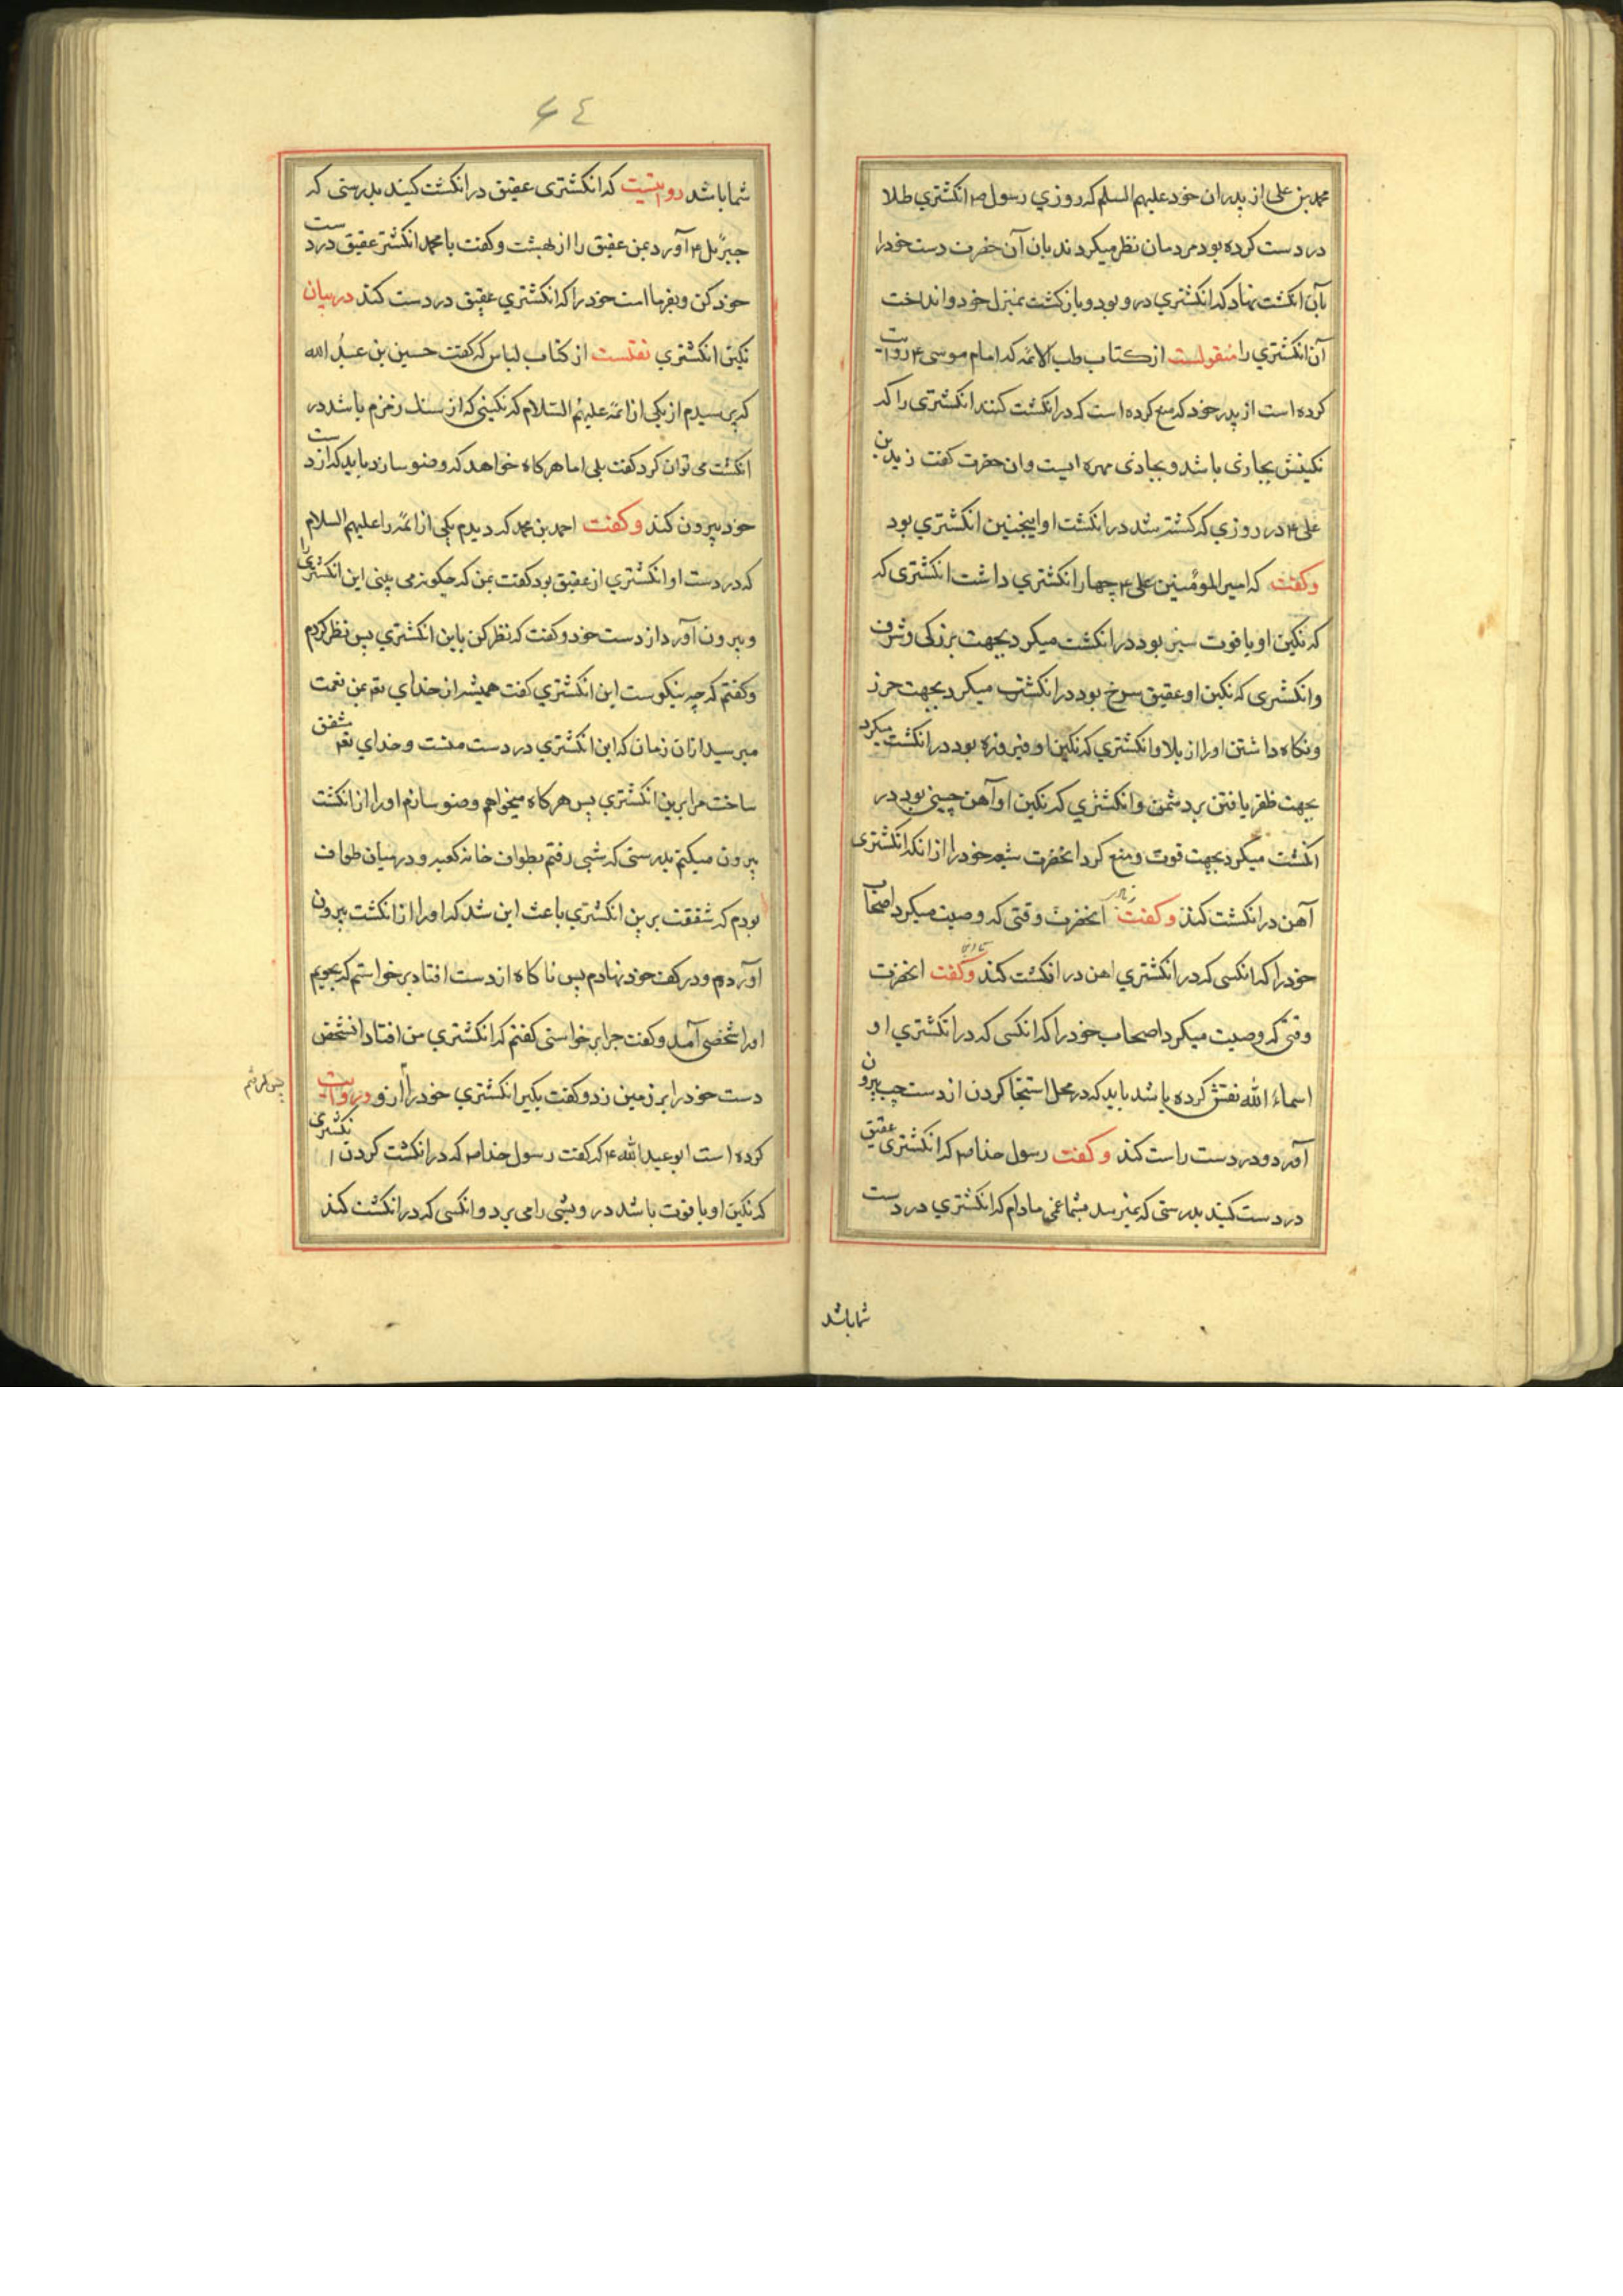 محمد بن علی از پدران خود علیهم السلم که روزي رسول ص انکشتري طلا
در دست کرده بود مردمان نظر میکردند بان آن حضرت دست خود را
بآن انکشت نهاد که انکشتري درو بود و بازکشت بمنزل خود و انداخت
آن انکشتري را منقولست از کتاب طب الائمه که امام موسی ع روایت
کرده است از پدر خود که منع کرده است که در انکشت کنند انکشتری را که
نکینش بجاذی باشد و بجاذی مهره ایست وان حضرت کفت زید بن
علی ع در روزي که کشته شد در انکشت او اینچنین انکشتري بود
وکفت که امیر المومنین علی ع چهار انکشتري داشت انکشتری که
که نکین او یاقوت سبز بود در انکشت میکرد بجهت بزرکی وشرف
وانکشتری که نکین او عقیق سرخ بود در انکشت میکرد بجهت حرز
ونکاه داشتن او را از بلا وانکشتري که نکین او فیروزه بود در انکشت میکرد
بجهت ظفر یافتن بر دشمن وانکشتري که نکین او آهن چینی بود در
انکشت میکرد بجهت قوت ومنع کرد انحضرت شیعه خود را از انکه انکشتری
آهن در انکشت کنند وکفت انحضرت وقتی که وصیت میکرد اصحاب
خود را که انکسی که در انکشتري اهن در انکشت کند وکفت انحضرت
وقتی که وصیت میکرد اصحاب خود را که انکسی که در انکشتري او
اسماء الله نقش کرده باشد باید که در محل استنجا کردن از دست چپ بیرون
آورد ودر دست راست کند وکفت رسول خدا ص که انکشتری عقیق
در دست کنید بدرستی که نمیرسد بشما غمی مادام که انکشتري در دست
شما باشد
٦٤
شما باشد روایتست که انکشتری عقیق در انکشت کنید بدرستی که
جبرئیل ع آورد بمن عقیق را از بهشت وکفت یا محمد انکشتر عقیق در دست
خود کن وبفرما امت خود را که انکشتري عقیق در دست کنند در بیان
نکین انکشتري نقلست از کتاب لباس که کفت حسین بن عبد الله
که پرسیدم از یکی از ائمه علیهم السلام که نکینی که از سنک زمزم باشد در
انکشت می توان کرد کفت بلی اما هرکاه خواهد که وضو سازد باید که از دست
خود بیرون کند وکفت احمد بن محمد که دیدم یکی از ائمه را علیهم السلام
که در دست او انکشتري از عقیق بود کفت بمن که چکونه می بینی این انکشتری را
وبیرون آورد از دست خود وکفت که نظر کن باین انکشتري پس نظر کردم
وکفتم که چه نیکوست این انکشتري کفت همیشه از خداي تع بمن نعمت
میرسید ازان زمان که این انکشتري در دست منست وخداي تع مشفق
ساخت مرا برین انکشتري پس هرکاه میخواهم وضو سازم او را از انکشت
بیرون میکنم بدرستی که شبی رفتم بطواف خانه کعبه ودر میان طواف
بودم که شفقت برین انکشتري باعث این شد که او را از انکشت بیرون
آوردم ودر کف خود نهادم پس ناکاه از دست افتاد برخواستم که بجویم
او را شخصی آمد وکفت چرا برخواستی کفتم که انکشتري من افتاد انشخص
دست خود را بر زمین زد وکفت بکیر انکشتري خود را ازو وروایت
کرده است ابو عبد الله ع که کفت رسول خدا ص که در انکشت کردن انکشتری
که نکین او یاقوت باشد درویشی را می برد وانکسی که در انکشت کند